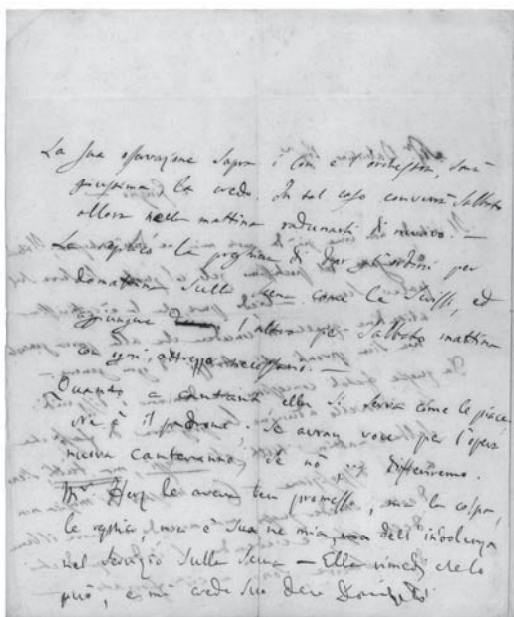 La sua osservazione sopra i Cori e l'orchestra, sarà
giustissima la credo. In tal caso converrà Sabbato
allora nella mattina radunarsi di nuovo. —
La replico la preghiera di dar gli ordini per
domattina sulla scena come le scrissi, ed
aggiungere l'altra per Sabbato mattina
con ogni attrezzo necessario. —
Quanto a cantanti ella si serva come le piace
Ne è il padrone, se avran voce per l'opera
nuova canteranno, se nò differiremo.
Mr le aveva ben promesso, ma la colpa,
le replico, non è sua ne mia, ma dell'indolenza
nel servizio sulla scena — Ella rimedj che lo
può, e mi creda suo Donizetti